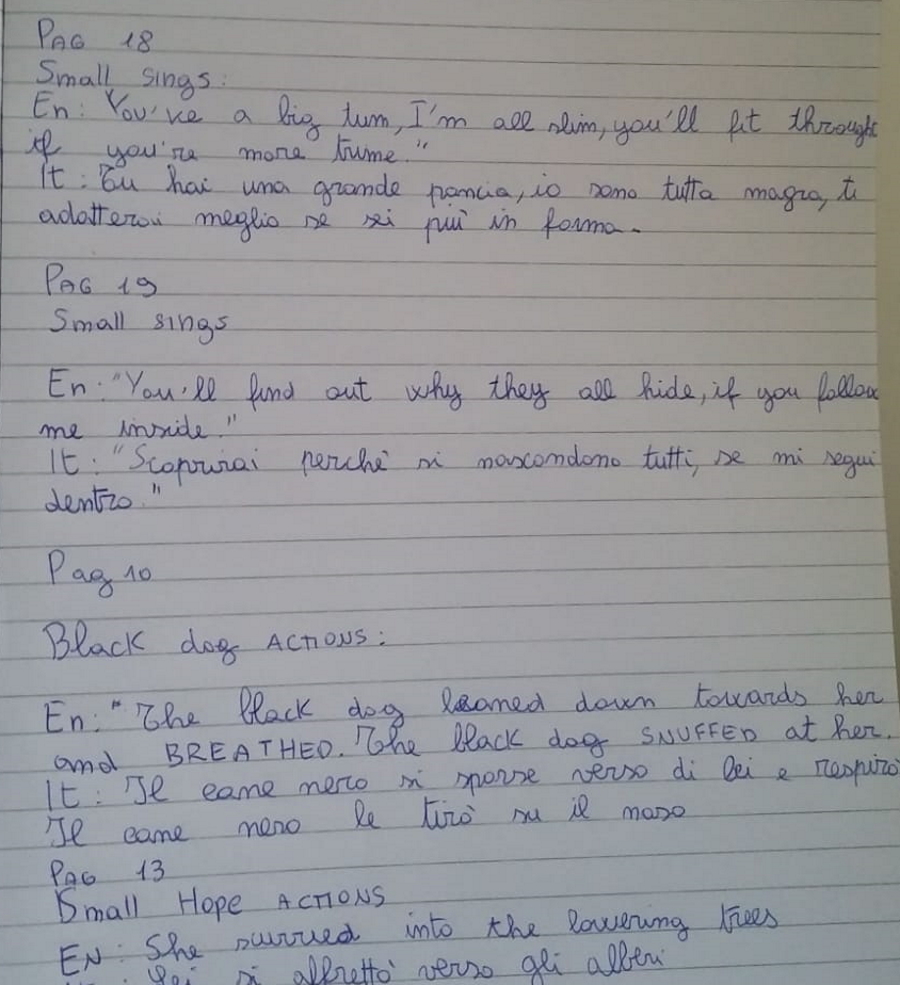 PAG 18
Small sings:
En: You've a big tum, I'm all slim, you'll fit throught
if you're more trume."
It: Tu hai una grande pancia, io sono tutta magra, ti
adatterai meglio se sei piú in forma.
PAG 19
Small sings
En: "You'll find out why they all hide, if you follow
me inside."
It: "Scoprirai perchè si nascondono tutti, se mi segui
dentro."
Pag 10
Black dog ACTIONS:
En: "The black dog leaned down towards her
and BREATHED. The black dog SNUFFED at her.
It: Il cane nero si sporse verso di lei e respirò
Il cane nero le tirò su il naso
PAG 13
Small Hope ACTIONS
EN: She scurried into the lowering trees
Lei si affrettò verso gli alberi